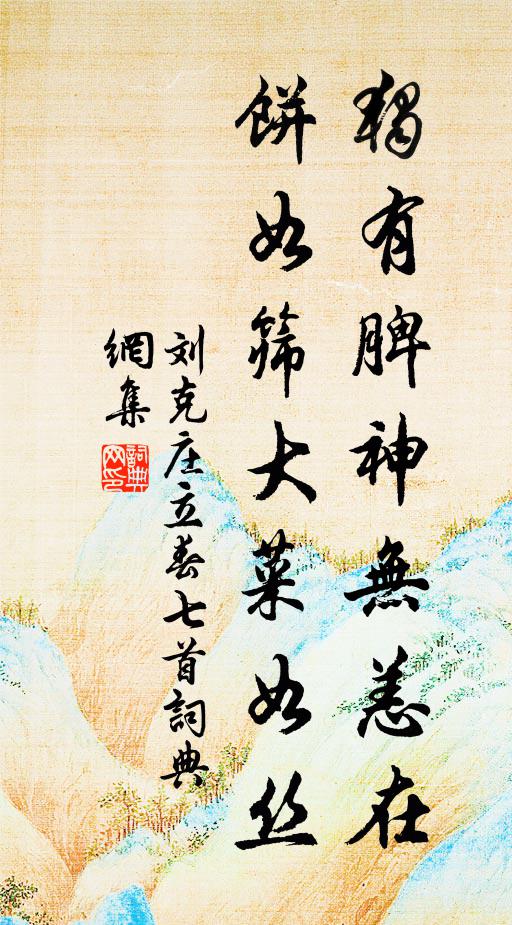 獨有脾神無恙在
餅如篩大菜如丝
刘克庄立春七首詞典
網集
詞典
网印